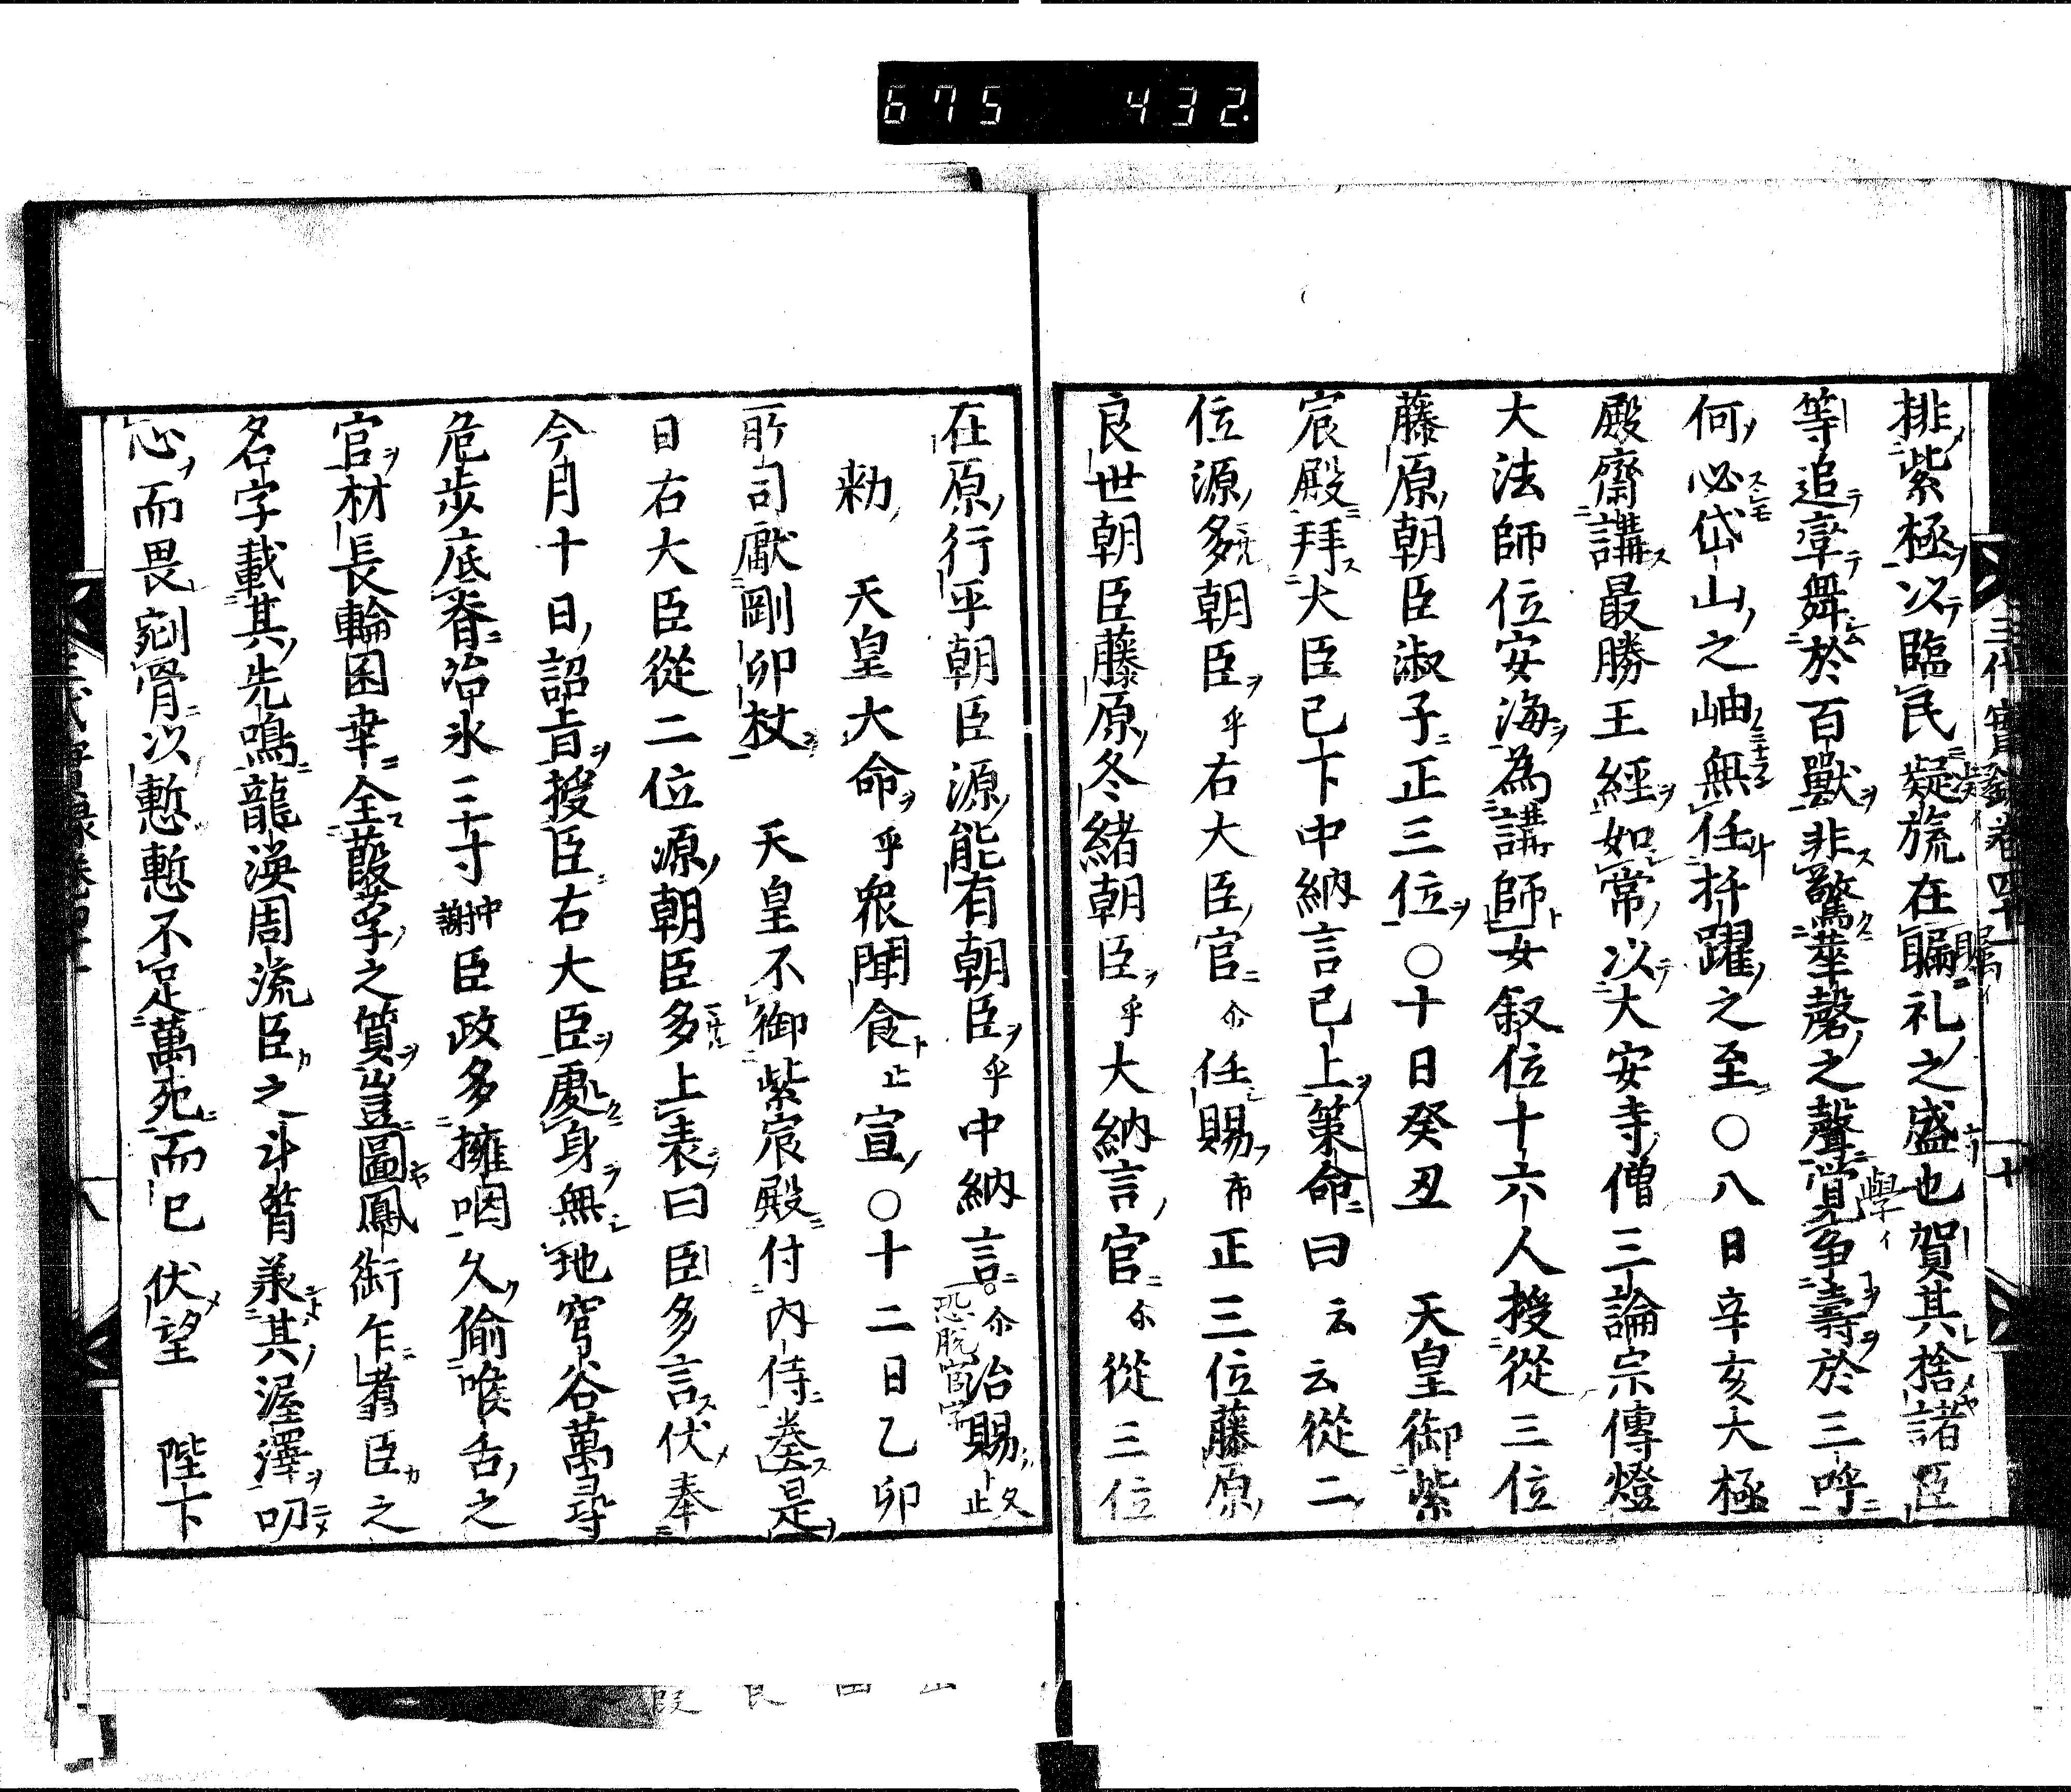 675 432.
排紫極以臨民凝旒在矚礼之盛也賀其捨諸臣
等追孿舞於百獸非驚華磬之聲覚争壽於三呼
何必岱山之岫無任抃躍之至○八日辛亥大極
殿齋講最勝王經如常以大安寺僧三論宗傳燈
大法師位安海為講師女叙位十六人授從三位
藤原朝臣淑子正三位○十日癸丑 天皇御紫
宸殿拜大臣已下中納言已上策命曰云云從二
位源多朝臣乎右大臣官尓任賜布正三位藤原
良世朝臣藤原冬緒朝臣乎大納言官尓從三位
在原行平朝臣源能有朝臣乎中納言尓治賜止久
勅 天皇大命乎衆聞食止宣○十二日乙卯
所司獻剛卯杖 天皇不御紫宸殿付内侍奏是
日右大臣從二位源朝臣多上表曰臣多言伏奉
今月十日詔旨授臣右大臣處身無地窮谷萬尋
危步底春冶氷三寸中謝臣政多擁咽久偷喉舌之
官材長輪困幸全葭莩之質豈圖鳳銜乍翥臣之
名字載其先鳴龍渙周流臣之斗筲羕其渥澤叨
心而畏剜骨以慙慙不足萬死而已伏望 陛下
三代實録卷四十一
十
八
恐脱官字